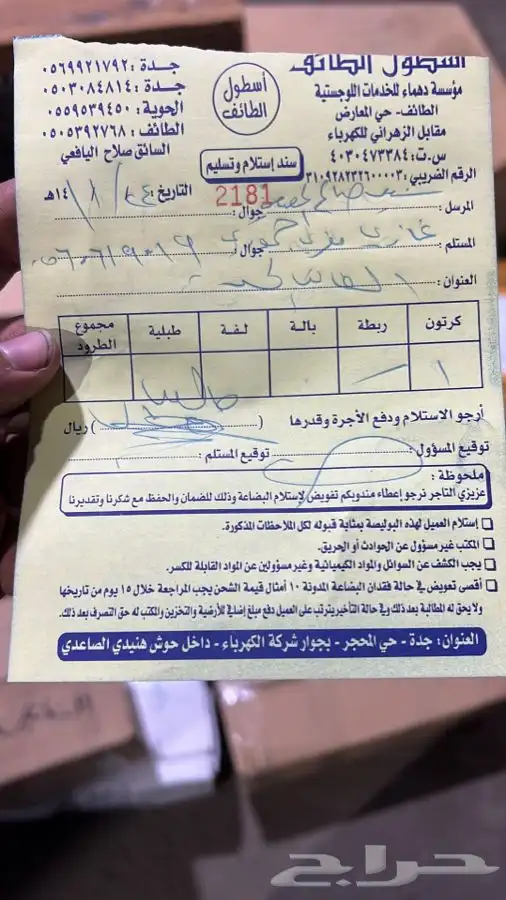 أسطول الطائف
مؤسسة دهماء للخدمات اللوجستية
الطائف - حي المعارض
مقابل الزهراني للكهرباء
س.ت: ٤٠٣٠٤٧٣٣٨٤
الرقم الضريبي: ٣١٠٩٢٨٢٣٢٦٠٠٠٠٣
أسطول الطائف
جدة: ٠٥٦٩٩٢١٧٩٢
جدة: ٠٥٠٣٠٨٤٨١٤
الحوية: ٠٥٥٩٥٣٩٤٥٠
الطائف: ٠٥٠٥٣٩٢٧٦٨
السائق صلاح اليافعي
سند إستلام وتسليم
2181
التاريخ: ٢٤ / ٨ / ١٤هـ
المرسل: جوال:
المستلم: غازي جوال: ٠٥٦٠٦١٩٠١٩
العنوان: الطائف
كرتون ربطة بالة لفة طبلية مجموع الطرود
١
أرجو الاستلام ودفع الأجرة وقدرها ( ) ريال
توقيع المسؤول: توقيع المستلم:
ملحوظة:
عزيزي التاجر نرجو إعطاء مندوبكم تفويض لإستلام البضاعة وذلك للضمان والحفظ مع شكرنا وتقديرنا
إستلام العميل لهذه البوليصة بمثابة قبوله لكل الملاحظات المذكورة.
المكتب غير مسؤول عن الحوادث أو الحريق.
يجب الكشف عن السوائل والمواد الكيميائية وغير مسؤولين عن المواد القابلة للكسر.
أقصى تعويض في حالة فقدان البضاعة المدونة ١٠ أمثال قيمة الشحن يجب المراجعة خلال ١٥ يوم من تاريخها
ولا يحق له المطالبة بعد ذلك وفي حالة التأخير يترتب على العميل دفع مبلغ إضافي للأرضية والتخزين والمكتب له حق التصرف بعد ذلك.
العنوان: جدة - حي المحجر - بجوار شركة الكهرباء - داخل حوش هنيدي الصاعدي
حراج